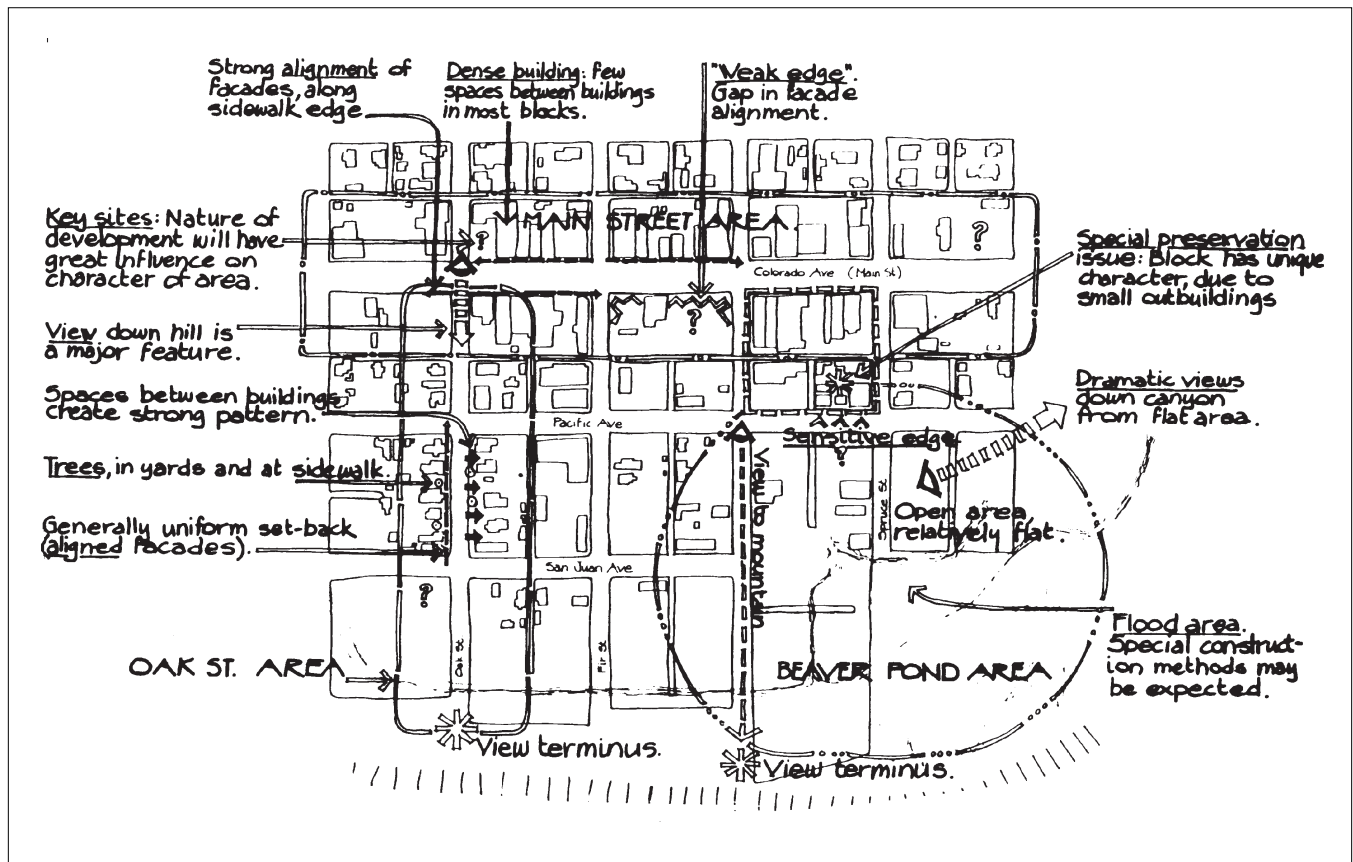 Strong alignment of
facades, along
sidewalk edge
Dense building: few
spaces between buildings
in most blocks.
"Weak edge".
Gap in facade
alignment.
Key sites: Nature of
development will have
great influence on
character of area.
?
MAIN STREET AREA.
?
Colorado Ave (Main St)
Special preservation
issue: Block has unique
character, due to
small outbuildings
View down hill is
a major feature.
?
Spaces between buildings
create strong pattern.
Dramatic views
down canyon
from flat area.
Pacific Ave
Sensitive edge
?
Trees, in yards and at sidewalk.
View to mountain
Spruce St
Open area
relatively flat.
Generally uniform set-back
(aligned facades).
San Juan Ave
?
Flood area.
Special construct-
ion methods may
be expected.
OAK ST. AREA
Oak St
Fir St
BEAVER POND AREA
View terminus.
View terminus.